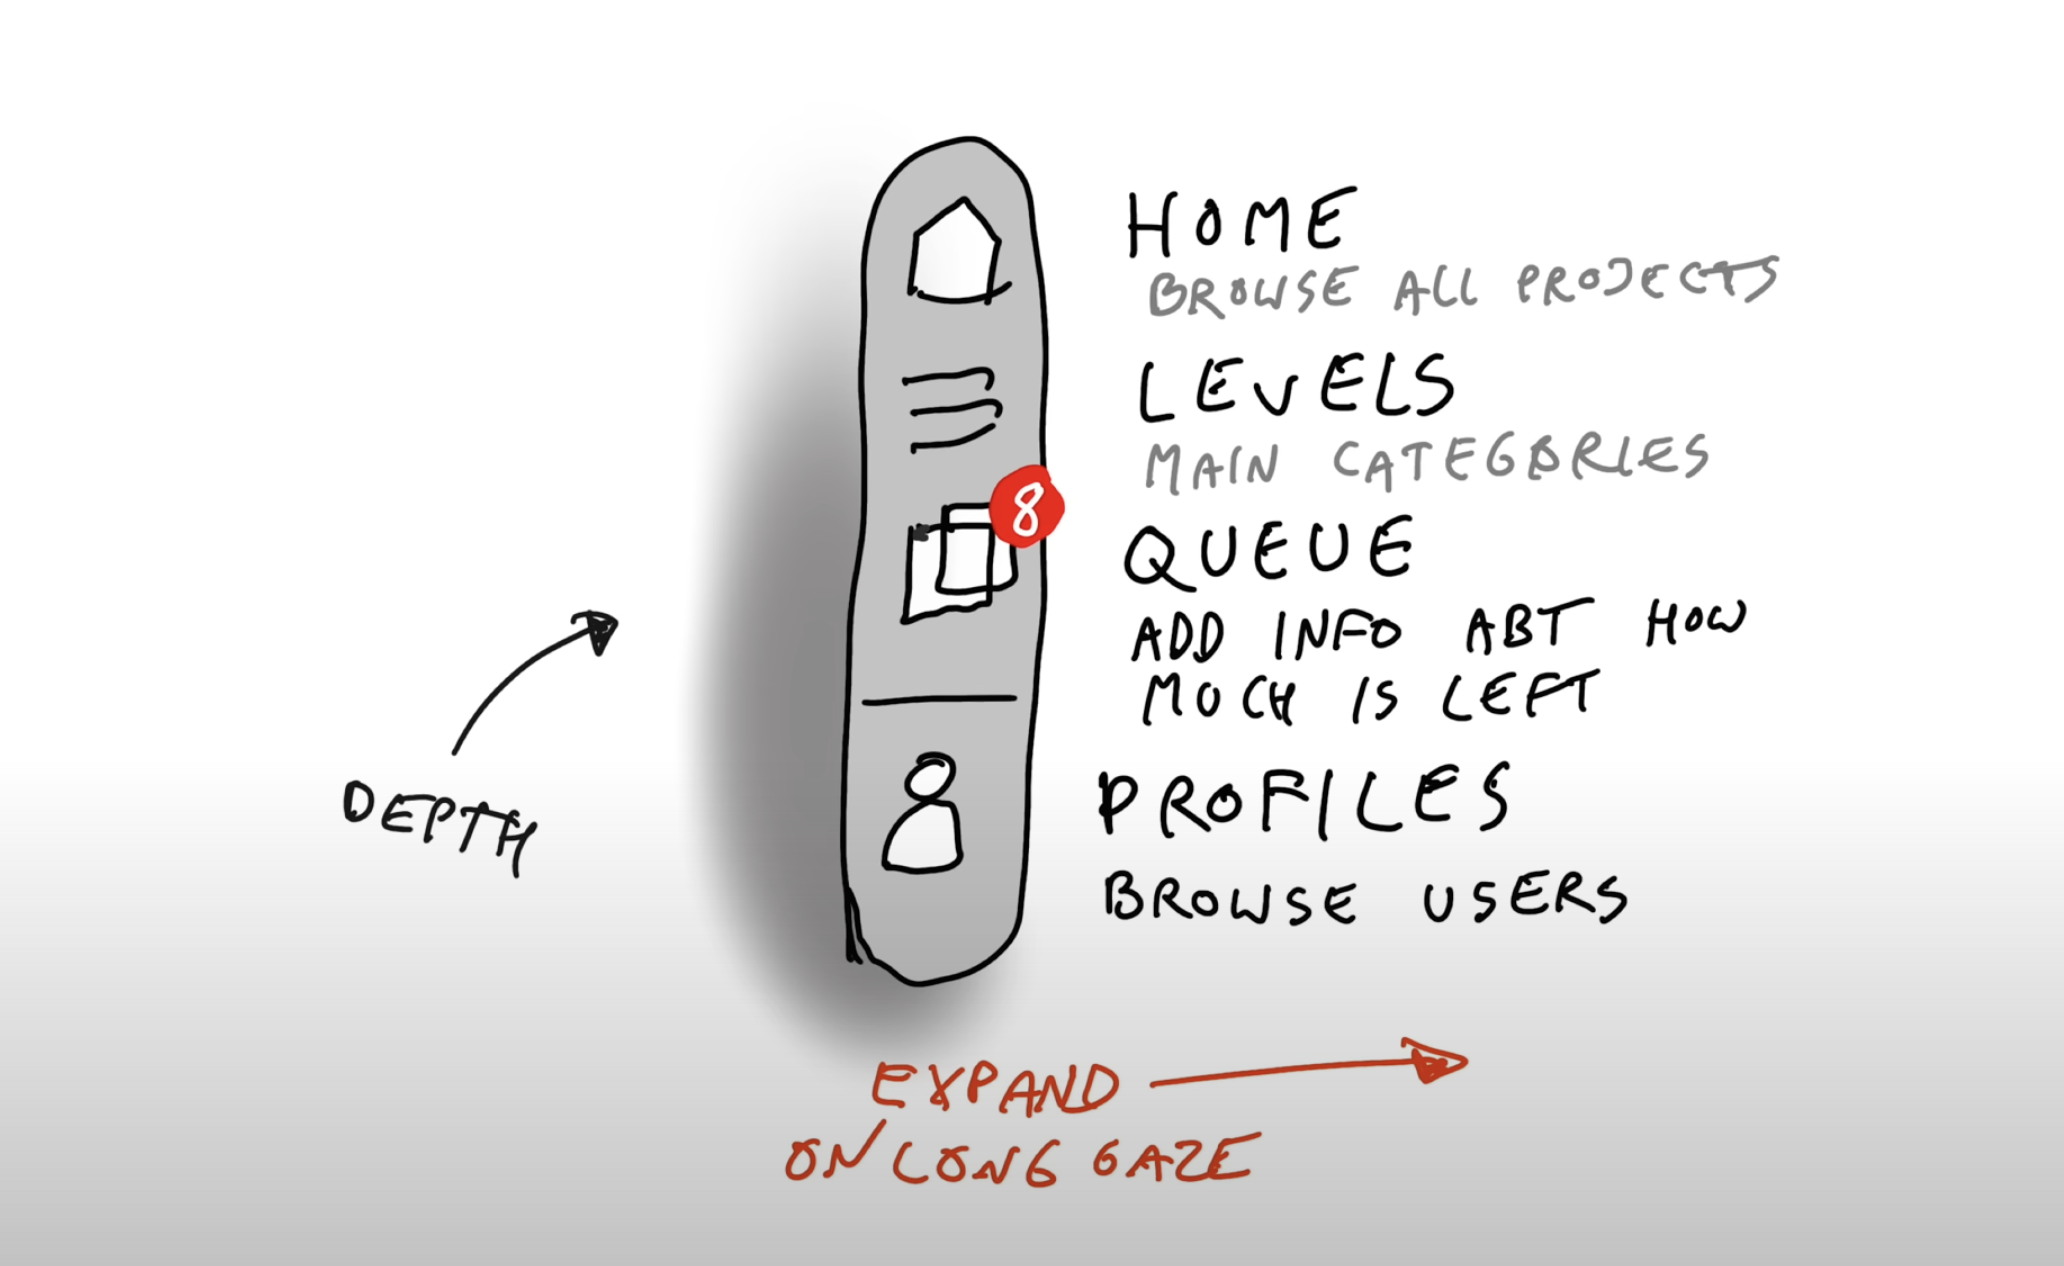 HOME
BROWSE ALL PROJECTS
LEVELS
MAIN CATEGORIES
8
QUEUE
ADD INFO ABT HOW
MUCH IS LEFT
PROFILES
BROWSE USERS
DEPTH
EXPAND
ON LONG GAZE